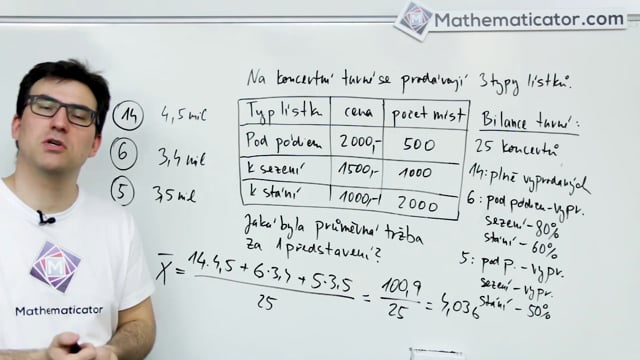 Mathematicator.com
Na koncertní turné se prodávají 3 typy lístků.
Typ lístku cena počet míst
Pod pódiem 2000,- 500
k sezení 1500,- 1000
k stání 1000,- 2000
14 4,5 mil
6 3,4 mil
5 3,5 mil
Bilance turné:
25 koncertů
14: plně vyprodaných
6: pod pódiem - vypr.
sezení - 80%
stání - 60%
5: pod p. - vypr.
sezení - vypr.
stání - 50%
Jaká byla průměrná tržba
za 1 představení?
X̄ = 14·4,5 + 6·3,4 + 5·3,5 / 25 = 100,9 / 25 = 4,036
Mathematicator